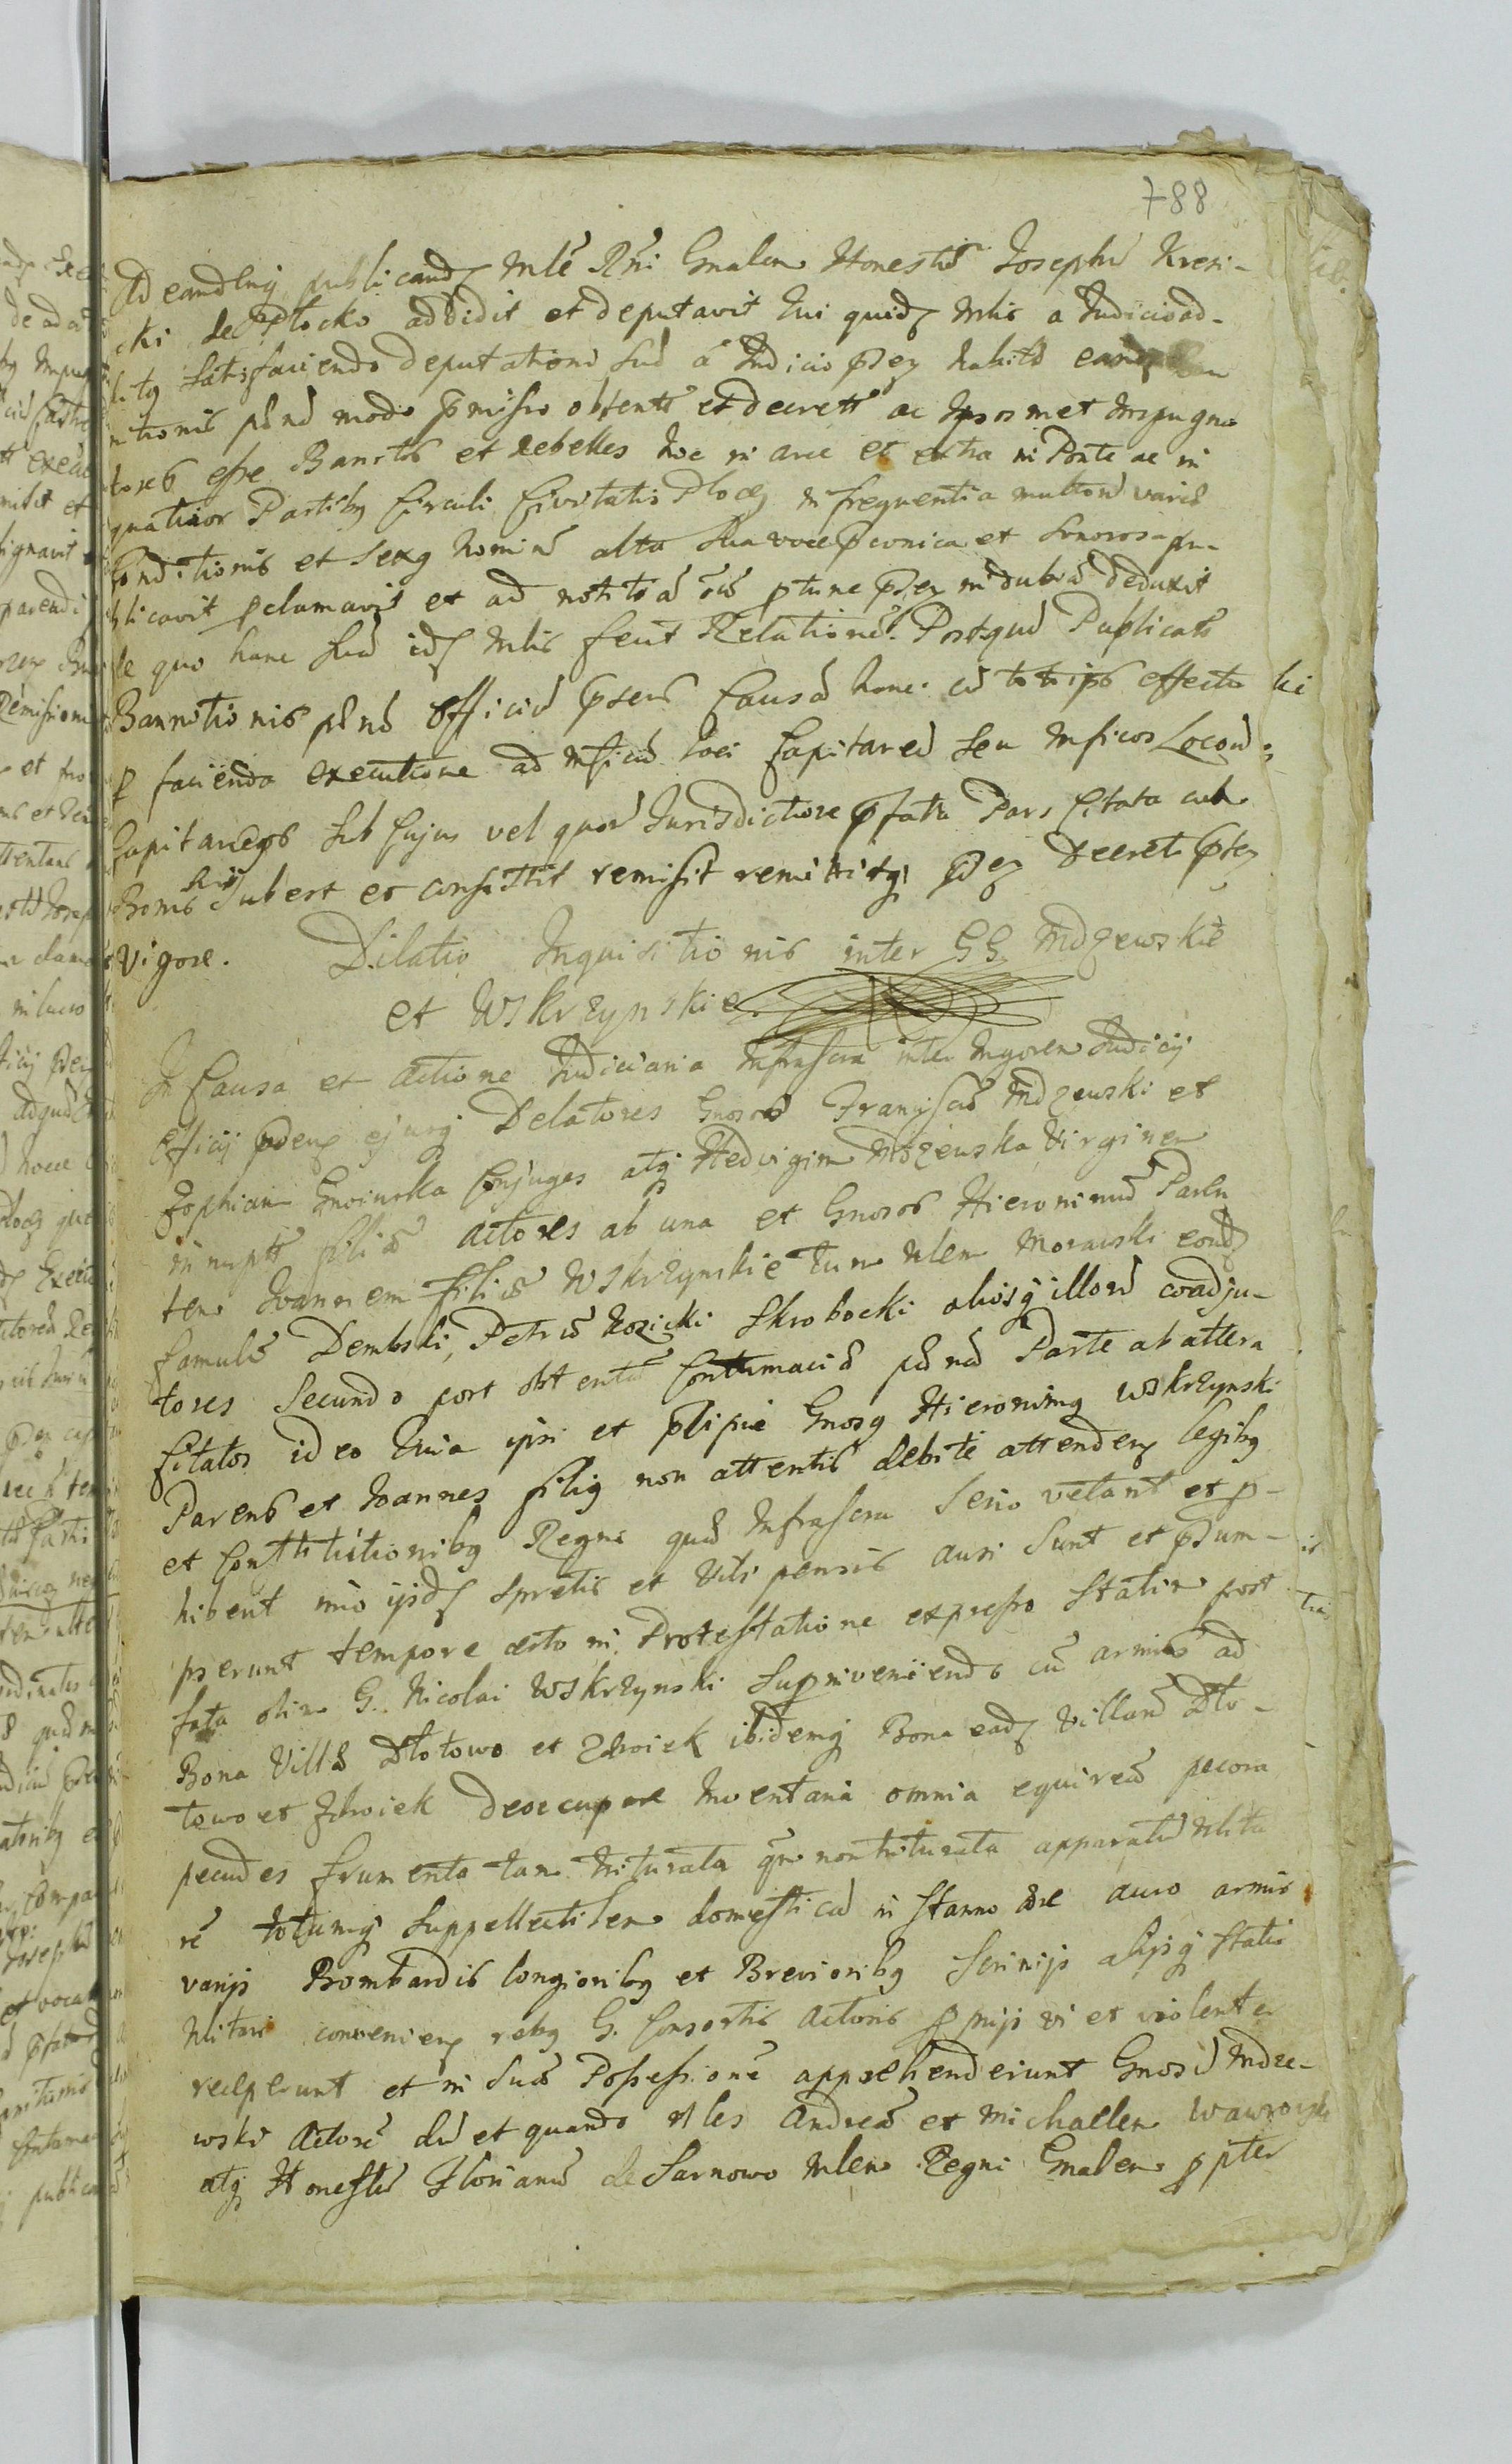 788
Ad eandemq publicand Mlẽ Rni Gnalem Honestũ Josephũ Kresi-
cki de Plocko addidit et deputavit Qui quidẽ Mlis a Judicio ad-
ditq satisfaciendo deputationi suæ a Judicio pñti habitæ eandẽ
nitionis pænã modo pmisso obtentã et decretã ac ipsosmet impugna
tores esse Banitos et rebelles hoc in arce et extra in Ponte ac in
quatuor Partibq Circuli Civitatis Plocẽ in frequentia multorũ varię
Conditionis et sexq hominũ alta sua voce pconica et sonorosa pu-
blicavit pclamavit et ad notitiã oĩũ ptunc pñtiũ indubiã deduxit
de quo hanc suã idẽ Mlis fecit Relationẽ. Postquã Publicatã
Bannitionis pænã Officiũ pñsens Causã hanc cũ toto ipsius effectu
p facienda executione ad Mficũ loci Capitaneũ seu Mficos Locorũ
Capitaneos sub cujus vel quorũ Jurisdictione pfata Pars Citata cum
Bonis suis subest et consistit remisit remittitq pñtis Decreti pñtis
vigore.
Dilatio Inquisitionis inter GG. Mdzewskie
et Wskrzynskie
In Causa et actione Judiciaria Infrascra inter Instigatorem Judicij
Officij pñtis ejusq Delatores Gnosos Franciscũ Mdzewski et
Zophiam Gnoinska Conjuges atq Hedvigim Mdzewska Virginem
innuptã filiã actores ab una et Gnosos Hieronimũ Paren
tem Joannem filiũ Wskrzynskie Tum Nlem Morawski eorũdẽ
famulũ Dembski, Petrũ Kozicki Skrobocki aliosq illorũ coadju-
tores secundo post obtentã Contumaciæ pænã Parte ab altera
Citatos ideo Quia ipsi et pcipuè Gnosq Hieronimq Wskrzynski
Parens et Joannes filiq non attentis debitè attendeñ legibq
et Constitutionibq Regni quæ Infrascra serio vetant et p-
hibent imò ijsdẽ spretis et vilipensis ausi sunt et psum-
pserunt tempore certo in Protestatione expresso statim post
fata olim G. Nicolai Wskrzynski superveniendo cũ armis ad
Bona Villã Dłotowo et Zdroiek ibidemq Bona eadẽ Villarũ Dło-
towo et Zdroiek deoccupare Inventaria omnia equireã pecora
pecudes frumenta tam triturata qm non triturata apparatũ Milita
rẽ totamq suppellectilem domesticã in stanno ære auro armis
varijs Bombardis longioribq et Brevioribq scrinijs alijsq statui
Militari convenieñ rebq G. Consortis Actoris pprijs vi et violenter
receperunt et in suã Possessionẽ apprehenderunt Gnosũ Mdze-
wski Actorẽ dũ et quando Nles Andreã et Michaelem Wawrowski
atq Honestũ Florianũ de Sarnowo Mlem Regni Gnalem ppter